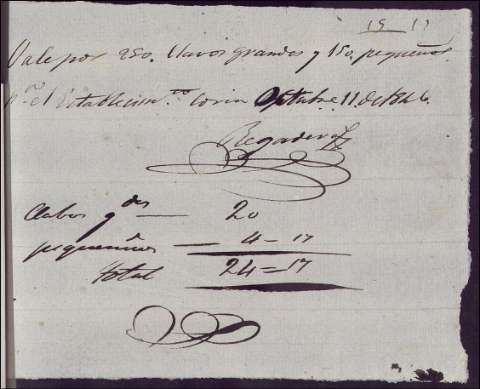 15 17
Vale por 250. Clavos grandes y 150. pequeños.
pª el Establecim.to Coria Octubre 11 de 1846.
Regadera
Clabos g.des — 20
pequeños — 4=17
total 24=17